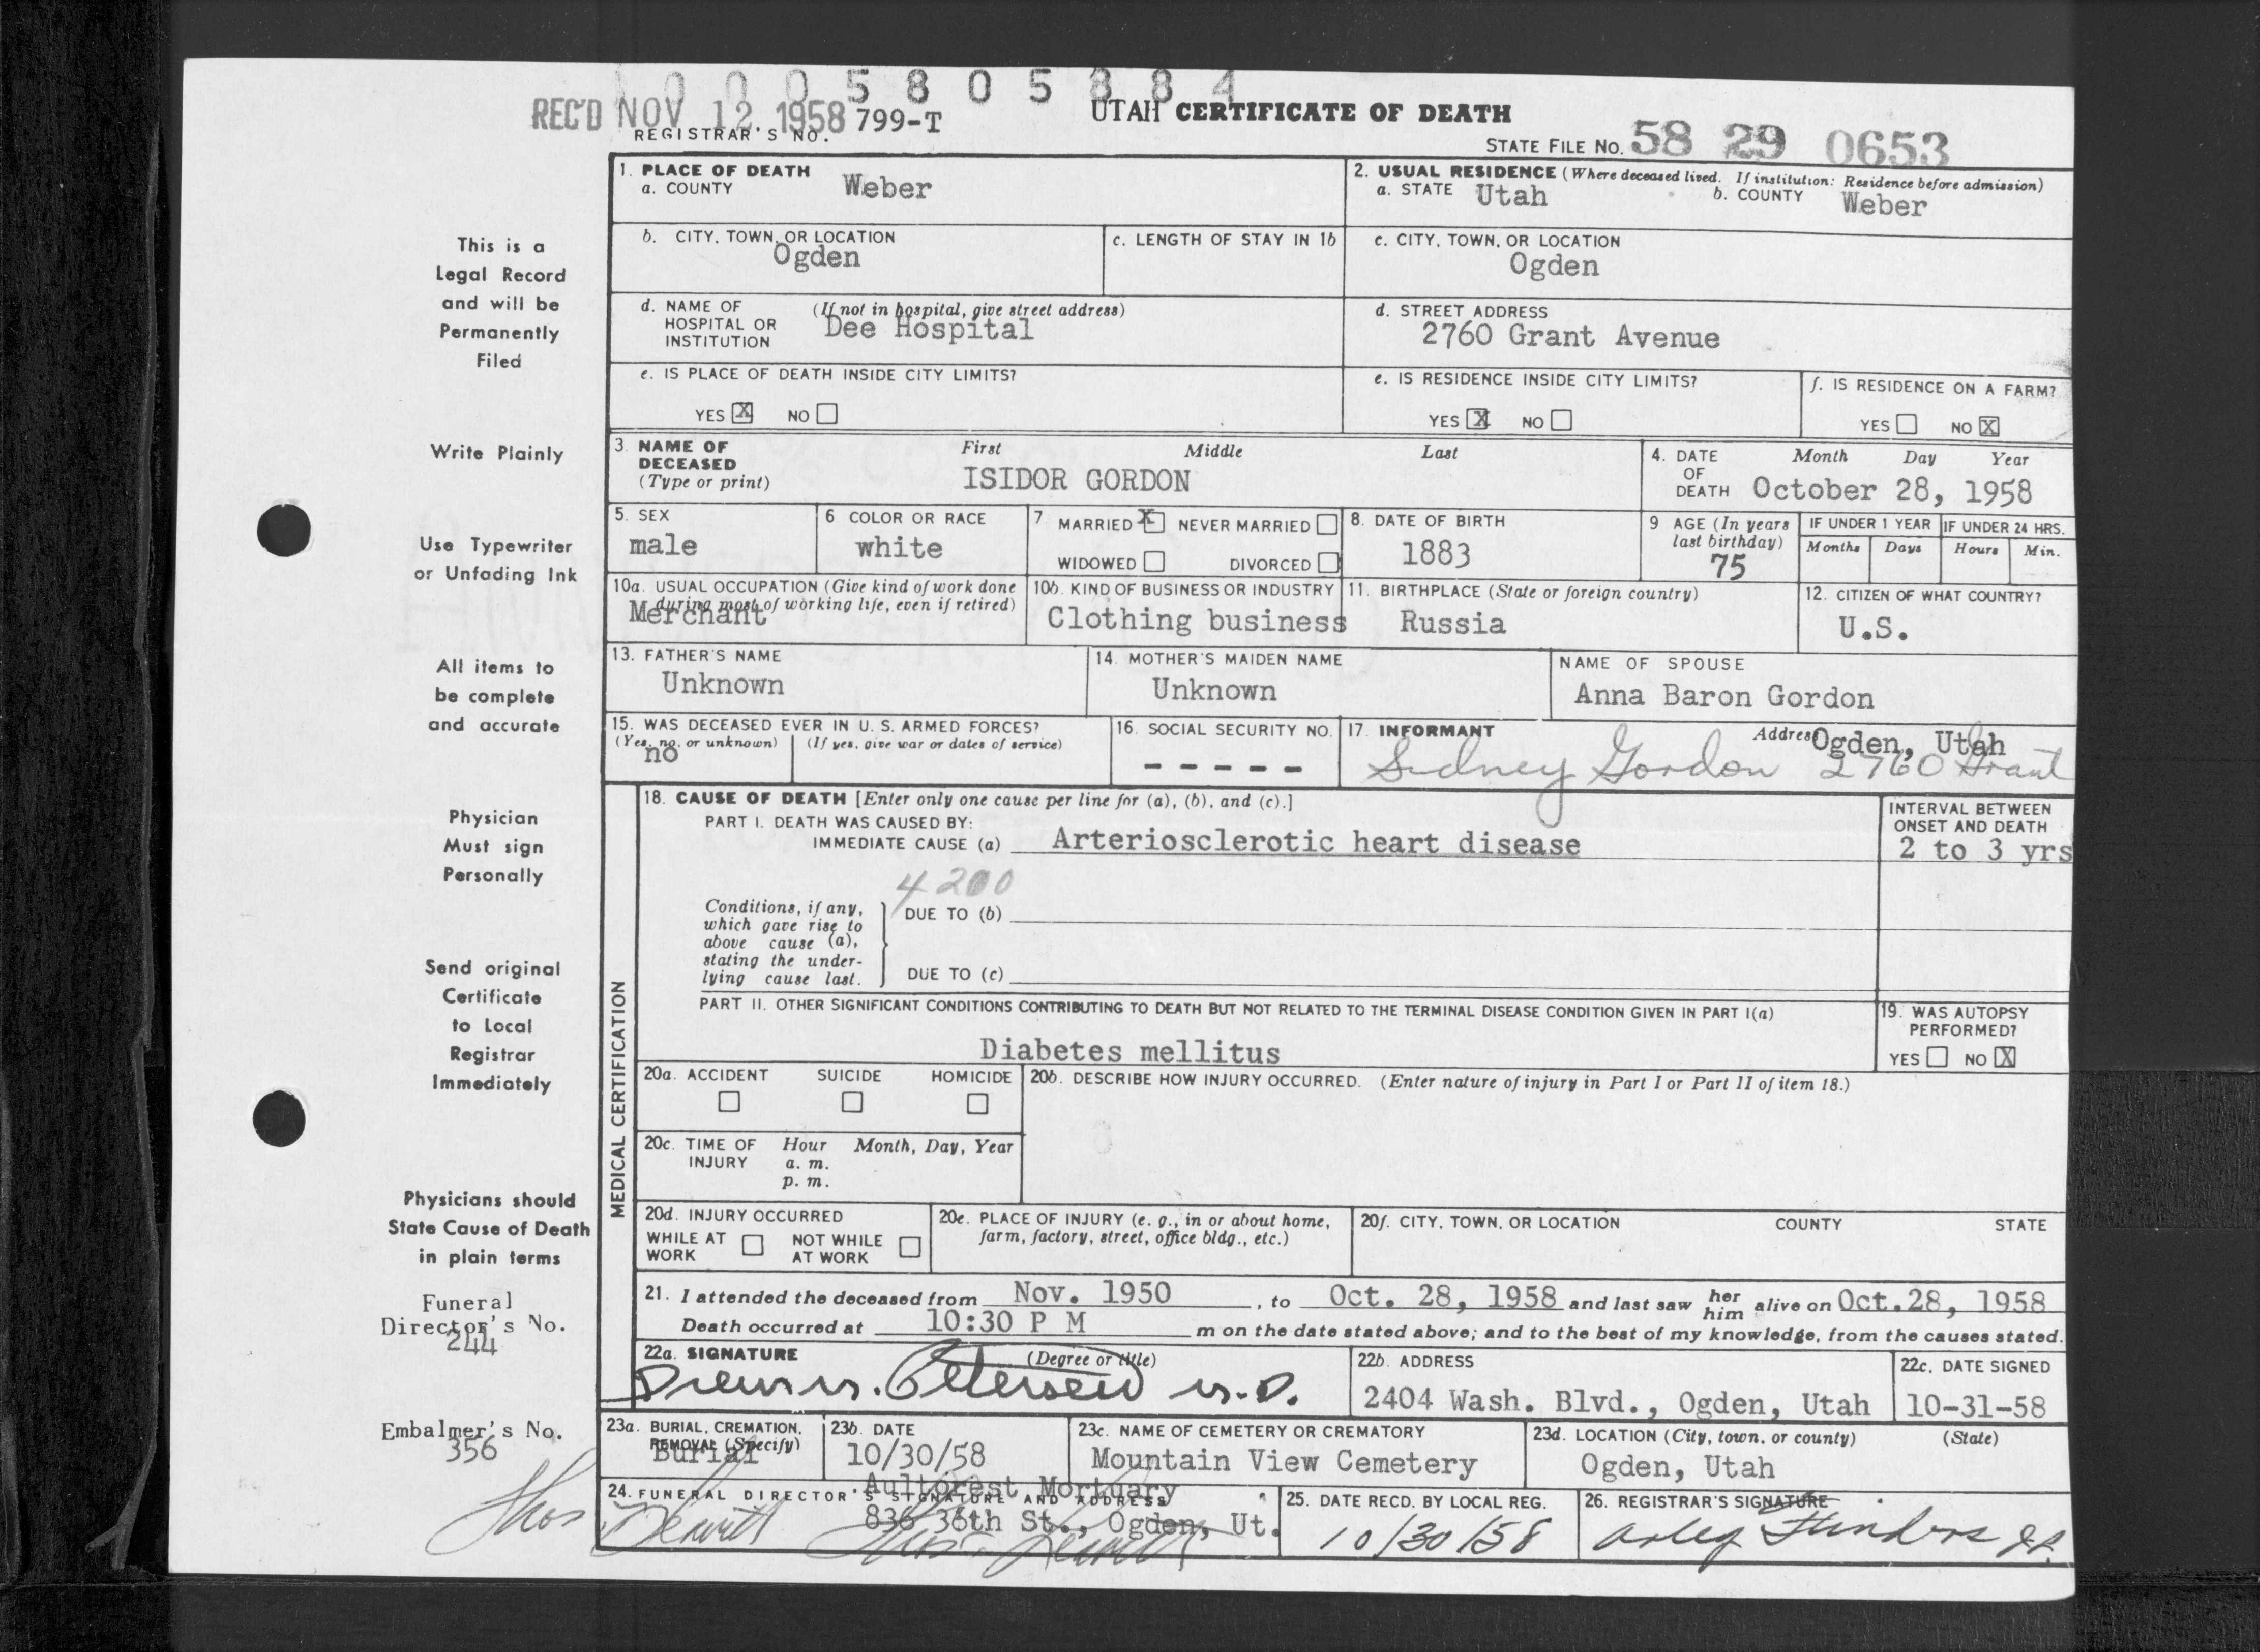 1 0 0 0 5 8 0 5 8 8 4
REC'D NOV 12 1958 799-T UTAH CERTIFICATE OF DEATH
REGISTRAR'S NO.
STATE FILE NO. 58 29 0653
1. PLACE OF DEATH
a. COUNTY Weber
2. USUAL RESIDENCE (Where deceased lived. If institution: Residence before admission)
a. STATE Utah b. COUNTY Weber
b. CITY, TOWN, OR LOCATION
Ogden
c. LENGTH OF STAY IN 1b
c. CITY, TOWN, OR LOCATION
Ogden
d. NAME OF HOSPITAL OR INSTITUTION (If not in hospital, give street address)
Dee Hospital
d. STREET ADDRESS
2760 Grant Avenue
e. IS PLACE OF DEATH INSIDE CITY LIMITS?
YES X NO
e. IS RESIDENCE INSIDE CITY LIMITS?
YES X NO
f. IS RESIDENCE ON A FARM?
YES NO X
3. NAME OF DECEASED (Type or print) First Middle Last
ISIDOR GORDON
4. DATE OF DEATH Month Day Year
October 28, 1958
5. SEX
male
6 COLOR OR RACE
white
7 MARRIED X NEVER MARRIED
WIDOWED DIVORCED
8. DATE OF BIRTH
1883
9 AGE (In years last birthday)
75
IF UNDER 1 YEAR
Months Days
IF UNDER 24 HRS.
Hours Min.
10a. USUAL OCCUPATION (Give kind of work done during most of working life, even if retired)
Merchant
10b. KIND OF BUSINESS OR INDUSTRY
Clothing business
11. BIRTHPLACE (State or foreign country)
Russia
12. CITIZEN OF WHAT COUNTRY?
U.S.
13. FATHER'S NAME
Unknown
14. MOTHER'S MAIDEN NAME
Unknown
NAME OF SPOUSE
Anna Baron Gordon
15. WAS DECEASED EVER IN U. S. ARMED FORCES?
(Yes, no, or unknown) (If yes, give war or dates of service)
no
16. SOCIAL SECURITY NO.
- - - - -
17. INFORMANT Address Ogden, Utah
Sidney Gordon 2760 Grant
MEDICAL CERTIFICATION
18. CAUSE OF DEATH [Enter only one cause per line for (a), (b), and (c).]
PART I. DEATH WAS CAUSED BY:
IMMEDIATE CAUSE (a) Arteriosclerotic heart disease
INTERVAL BETWEEN ONSET AND DEATH
2 to 3 yrs
4200
Conditions, if any, which gave rise to above cause (a), stating the underlying cause last.
DUE TO (b)
DUE TO (c)
PART II. OTHER SIGNIFICANT CONDITIONS CONTRIBUTING TO DEATH BUT NOT RELATED TO THE TERMINAL DISEASE CONDITION GIVEN IN PART I(a)
Diabetes mellitus
19. WAS AUTOPSY PERFORMED?
YES NO X
20a. ACCIDENT SUICIDE HOMICIDE
20b. DESCRIBE HOW INJURY OCCURRED. (Enter nature of injury in Part I or Part II of item 18.)
20c. TIME OF INJURY Hour Month, Day, Year
a. m.
p. m.
20d. INJURY OCCURRED
WHILE AT WORK NOT WHILE AT WORK
20e. PLACE OF INJURY (e. g., in or about home, farm, factory, street, office bldg., etc.)
20f. CITY, TOWN, OR LOCATION COUNTY STATE
21. I attended the deceased from Nov. 1950, to Oct. 28, 1958 and last saw her him alive on Oct.28, 1958
Death occurred at 10:30 P M m on the date stated above; and to the best of my knowledge, from the causes stated.
22a. SIGNATURE (Degree or title)
Drew M. Petersen M.D.
22b. ADDRESS
2404 Wash. Blvd., Ogden, Utah
22c. DATE SIGNED
10-31-58
23a. BURIAL, CREMATION, REMOVAL (Specify)
Burial
23b. DATE
10/30/58
23c. NAME OF CEMETERY OR CREMATORY
Mountain View Cemetery
23d. LOCATION (City, town, or county) (State)
Ogden, Utah
24. FUNERAL DIRECTOR'S SIGNATURE AND ADDRESS
Aultorest Mortuary
836 36th St., Ogden, Ut.
25. DATE RECD. BY LOCAL REG.
10/30/58
26. REGISTRAR'S SIGNATURE
Arley Flinders
This is a
Legal Record
and will be
Permanently
Filed
Write Plainly
Use Typewriter
or Unfading Ink
All items to
be complete
and accurate
Physician
Must sign
Personally
Send original
Certificate
to Local
Registrar
Immediately
Physicians should
State Cause of Death
in plain terms
Funeral
Director's No.
244
Embalmer's No.
356